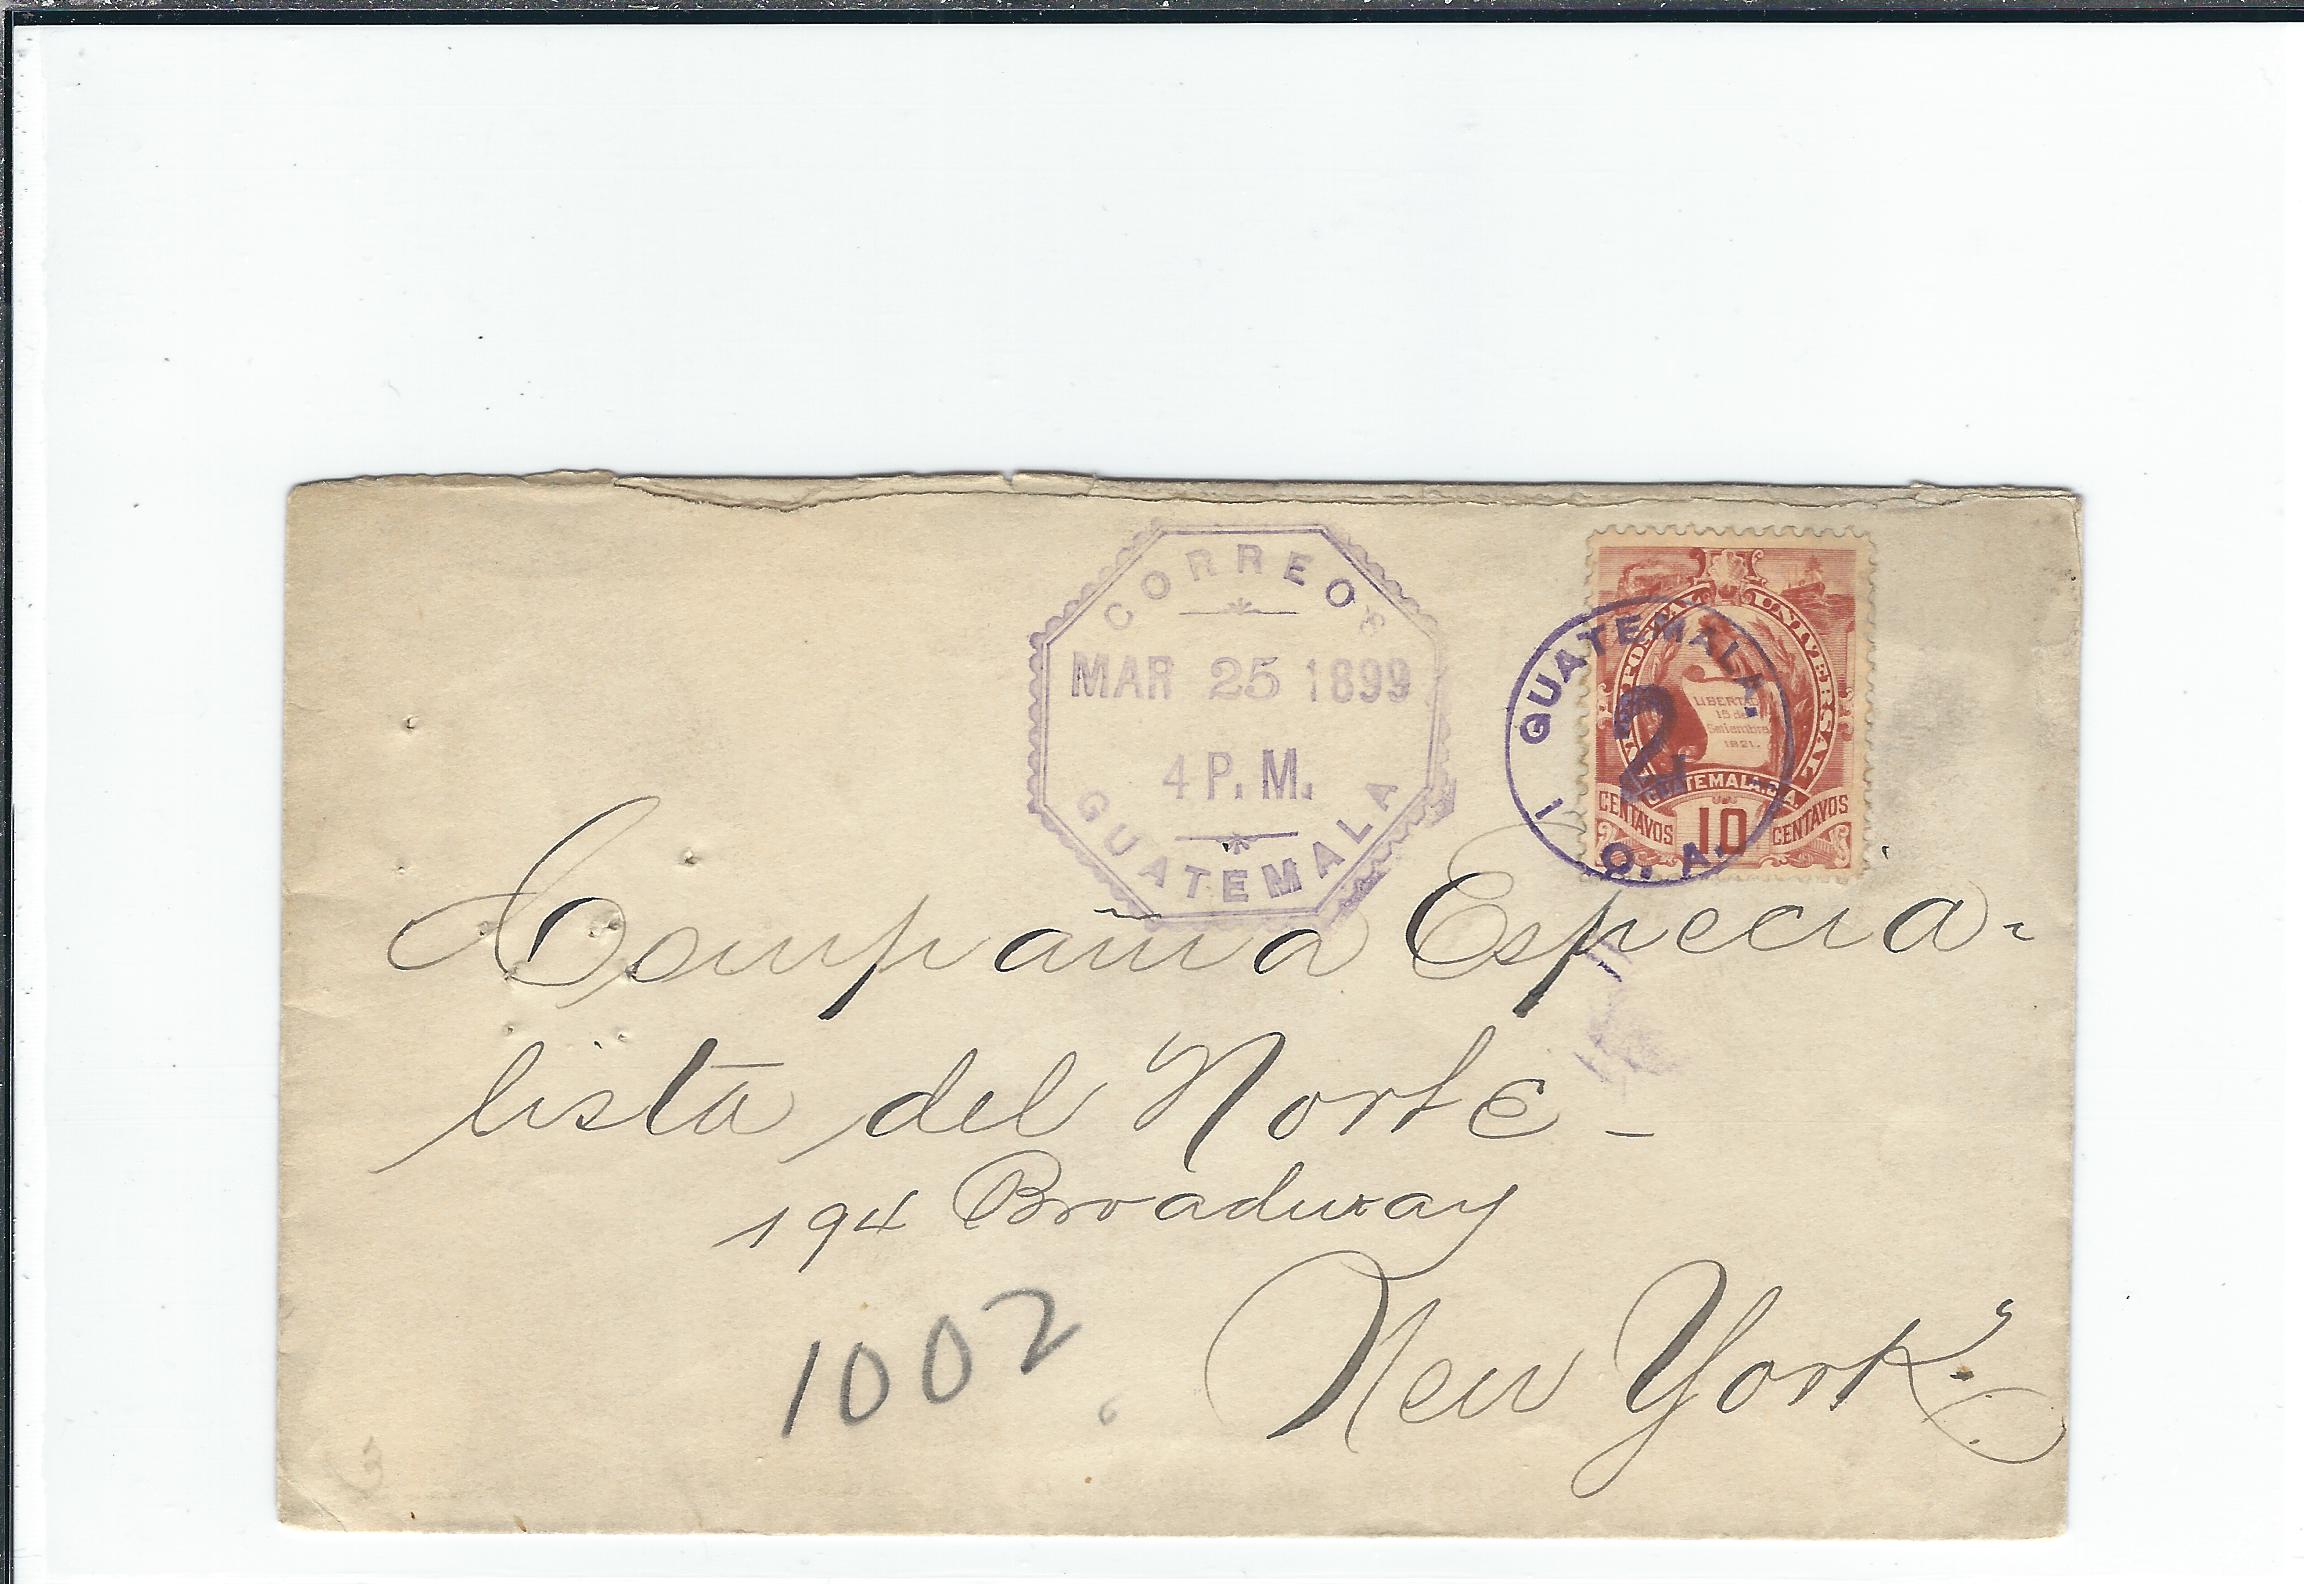 CORREOS
MAR 25 1899
4 P.M.
GUATEMALA
GUATEMALA.
2
C. A.
UNION POSTAL UNIVERSAL
LIBERTAD
15 de
Setiembre
1821.
GUATEMALA.C.A.
CENTAVOS 10 CENTAVOS
Compañia Especia-
lista del Norte -
194 Broadway
New York
1002